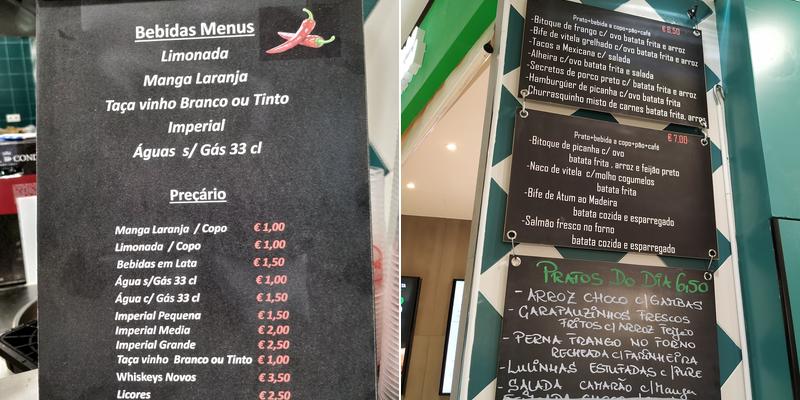 Bebidas Menus
Limonada
Manga Laranja
Taça vinho Branco ou Tinto
Imperial
Águas s/ Gás 33 cl
Preçário
Manga Laranja / Copo € 1,00
Limonada / Copo € 1,00
Bebidas em Lata € 1,50
Água s/Gás 33 cl € 1,00
Água c/ Gás 33 cl € 1,50
Imperial Pequena € 1,50
Imperial Media € 2,00
Imperial Grande € 2,50
Taça vinho Branco ou Tinto € 1,00
Whiskeys Novos € 3,50
Licores € 2,50
COND
Prato+bebida a copo+pão+café € 6,50
-Bitoque de frango c/ovo batata frita e arroz
-Bife de vitela grelhado c/ovo batata frita e arroz
-Tacos a Mexicana c/ salada
-Alheira c/ovo batata frita e salada
-Secretos de porco preto c/ batata frita e arroz
-Hambúrguer de picanha c/ovo batata frita
Churrasquinho misto de carnes batata frita, arroz
Prato+bebida a copo+pão+café € 7,00
-Bitoque de picanha c/ ovo
batata frita , arroz e feijão preto
-Naco de vitela c/molho cogumelos
batata frita
-Bife de Atum ao Madeira
batata cozida e esparregado
-Salmão fresco no forno
batata cozida e esparregado
PRATOS DO DIA 6,50
- ARROZ CHOCO C/GAMBAS
- GARAPAUZINHOS FRESCOS
FRITOS C/ARROZ FEIJÃO
- PERNA FRANGO NO FORNO
RECHEADA C/FARINHEIRA
- LULINHAS ESTUFADAS C/PURE
- SALADA CAMARÃO C/Manga